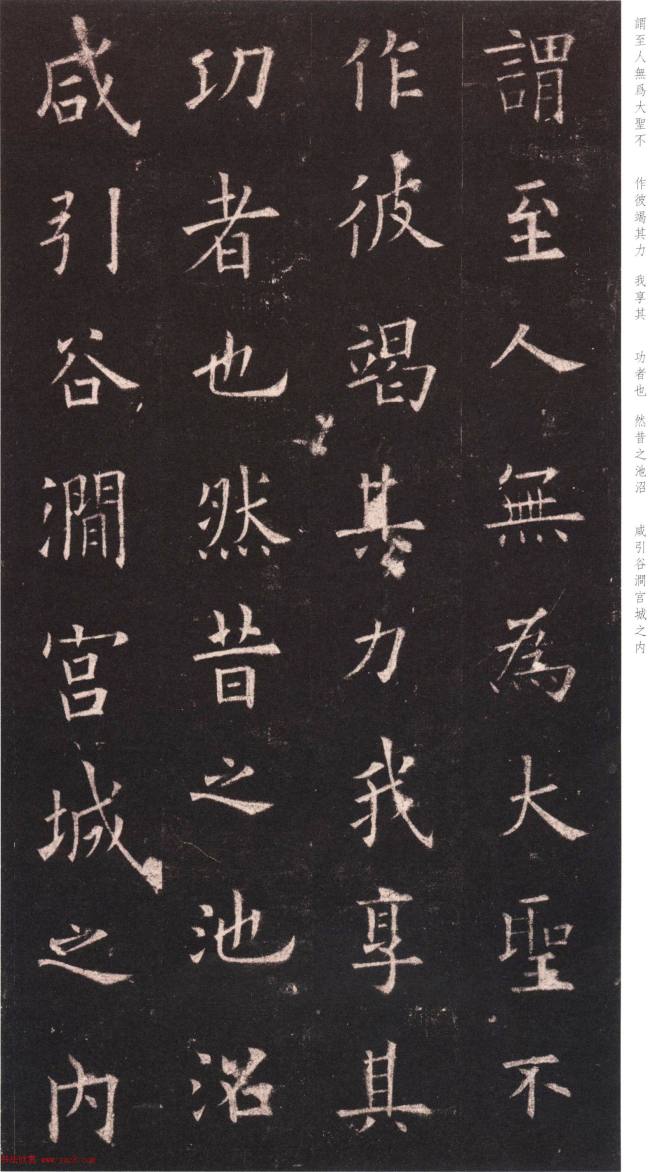 謂至人無為大聖不
作彼竭其力我享其
功者也然昔之池沼
咸引谷澗宮城之內
謂至人無爲大聖不 作彼竭其力 我享其 功者也 然昔之池沼 咸引谷澗宮城之内